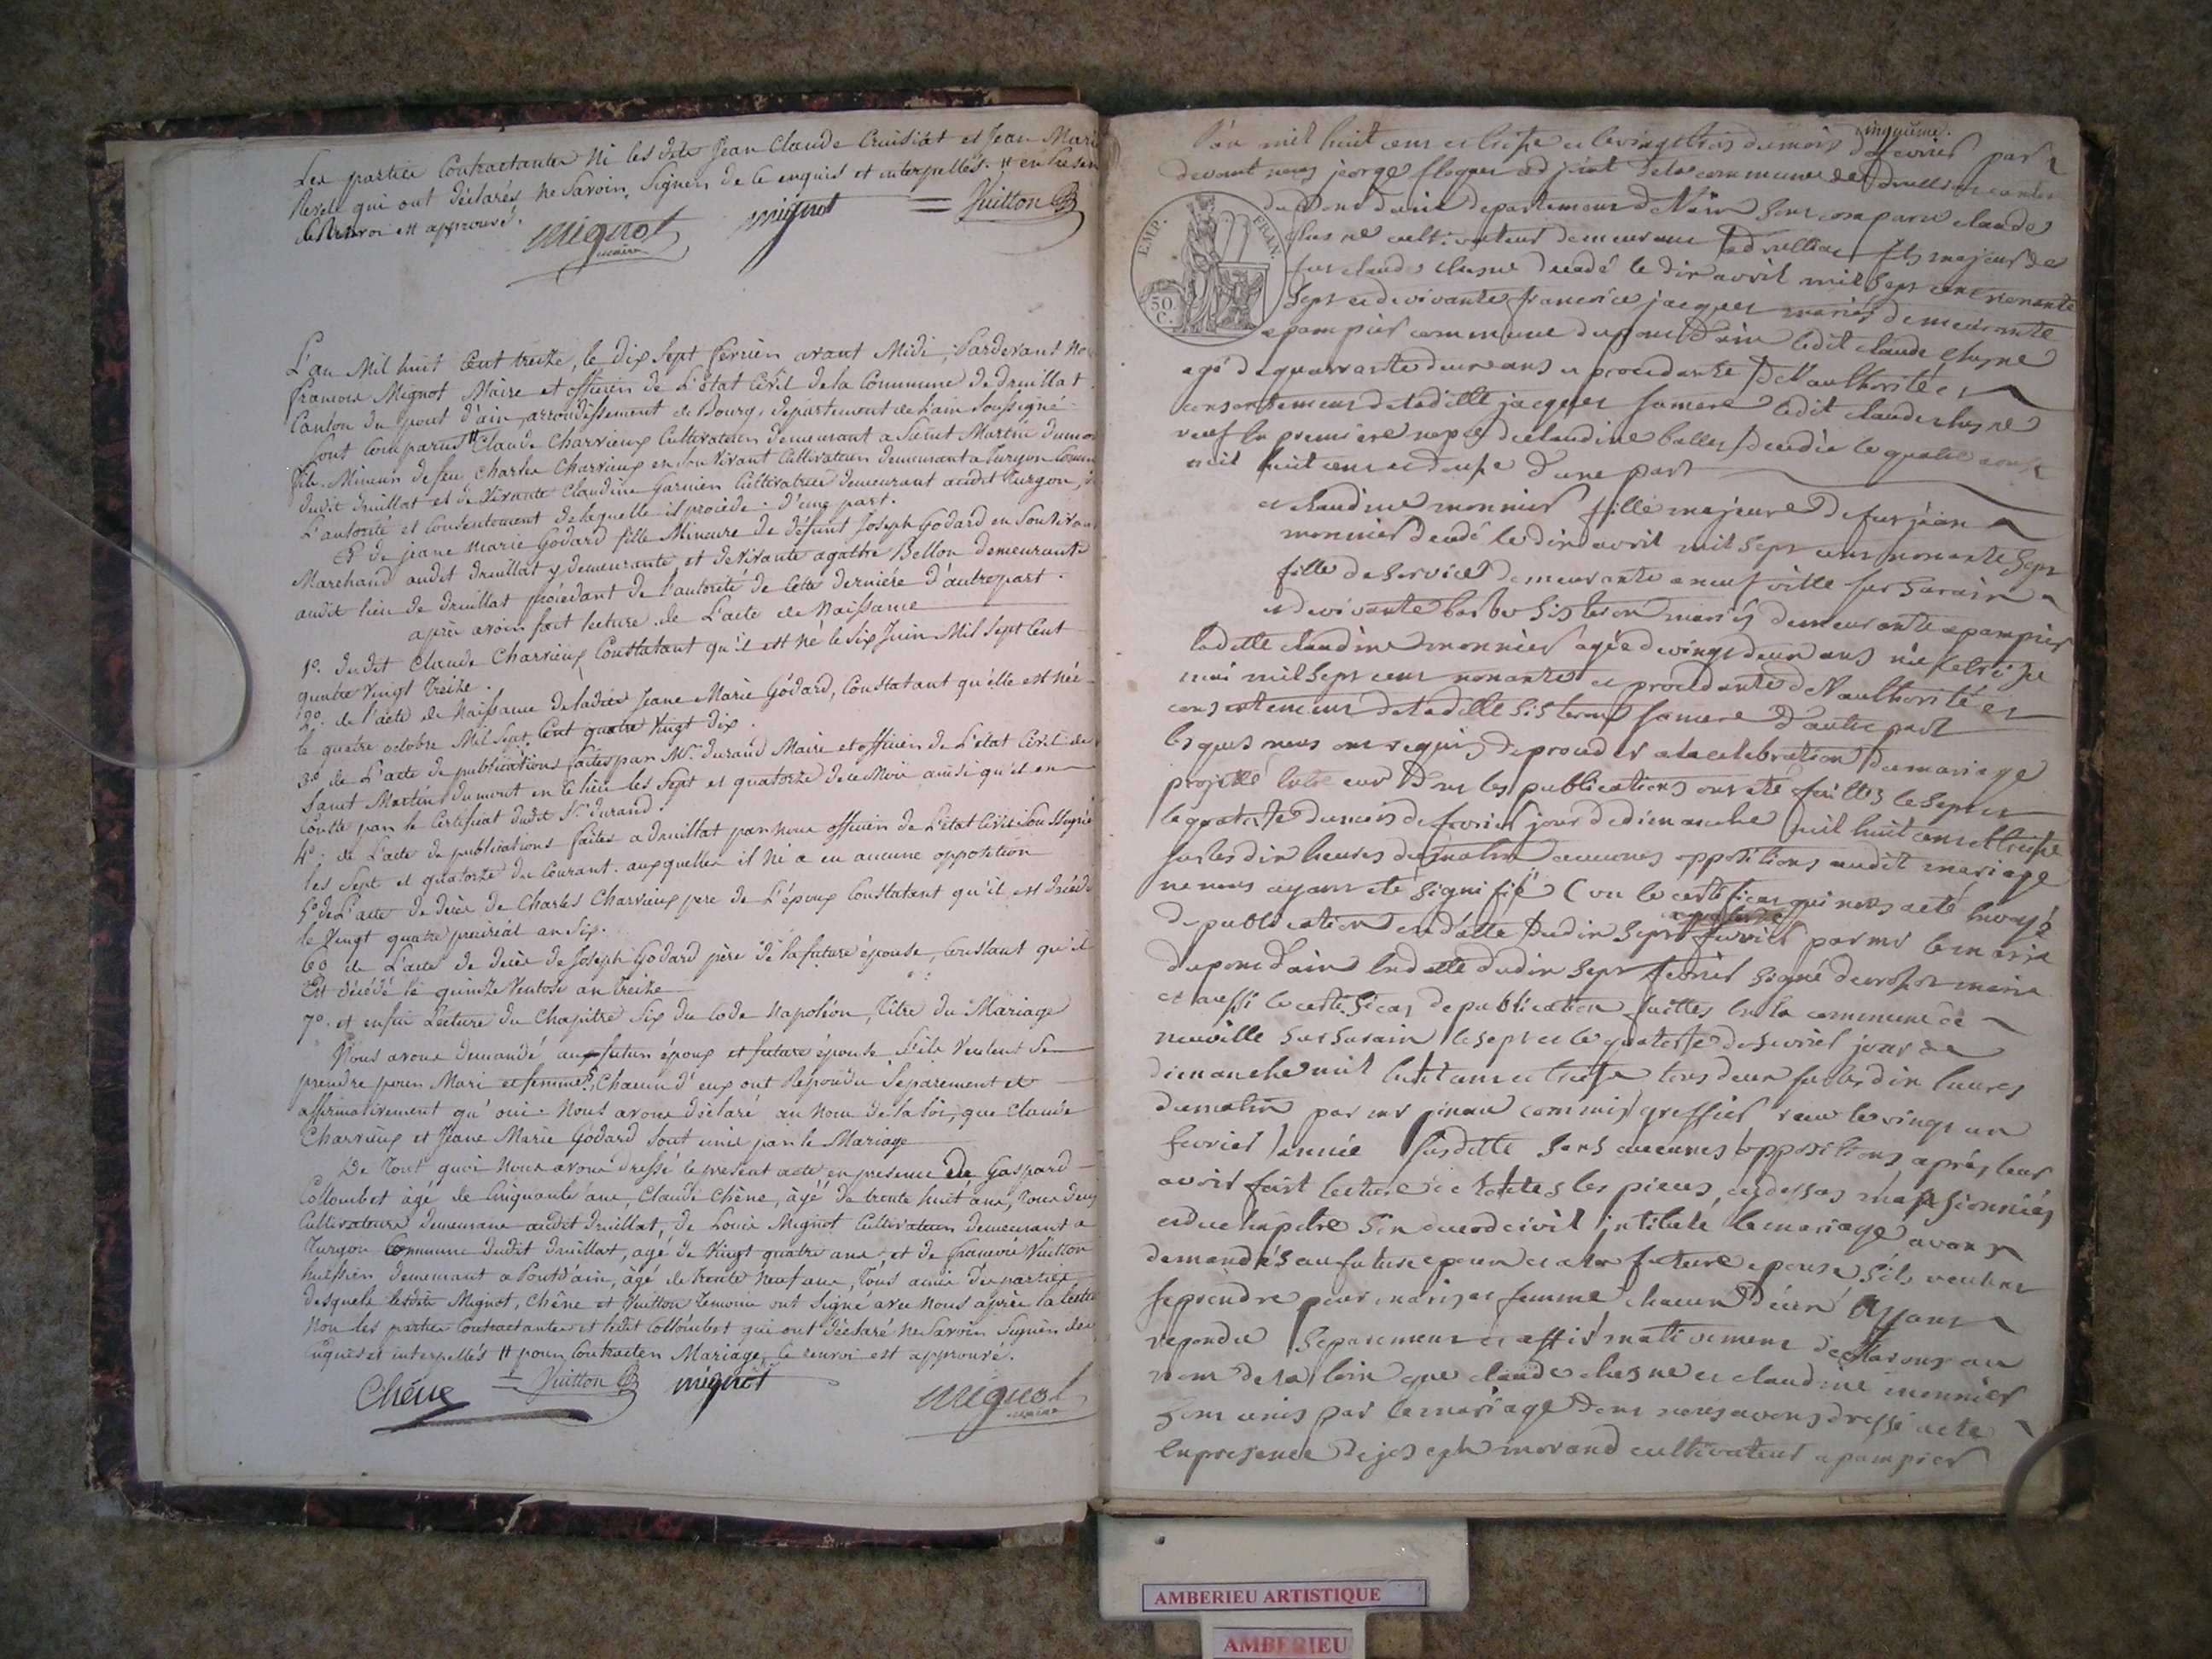 Les partie Contractantes Ni les dits Jean Claude Cruisiat et Jean Marie
Nevele qui ont déclarés ne Savoir Signer de ce enquis et interpellés. # en presen
le renvoi est approuvé.
Mignot maire
mignot
Vuitton
L'an Mil huit Cent treize, le dix Sept fevrier avant Midi, Pardevant No
francois Mignot Maire et officier de L'état Civil de la Commune de druillat
Canton du pont d'ain, arrondissement de Bourg, departement de L'ain Soussigné
Sont Comparus # Claude Charvieux Cultivateur demeurant a Saint Martin dumon
fils Mineur de feu Charles Charvieux en Son Vivant Cultivateur demeurant a Turgon Comm
dudit druillat et de Vivante Claudine Garnier Cultivatrice demeurant audit Turgon, 
L'autorité et Consentement de laquelle il procède. d'une part.
Et de jeane Marie Godard fille Mineure de défunt Joseph Godard en Son Vivant
Marchand audit druillat y demeurante et de Vivante agathe Bellon demeurante
audit lieu de druillat procédant de l'autorité de Cette derniére d'autre part.
après avoir fait lecture de L'acte de Naissance
1º. dudit Claude Charvieux Constatant qu'il est né le Six Juin Mil Sept Cent
quatre Vingt Treize.
2º. de l'acte de Naissance de ladite Jeane Marie Godard, Constatant qu'elle est née
le quatre octobre Mil Sept Cent quatre Vingt dix.
3º de L'acte de publications faites par Mr. durand Maire et officier de L'état Civil de
Saint Martin dumont en Ce lieu les Sept et quatorze de ce Mois ainsi qu'il en
Conste par le Certificat dudit Sr. durand.
4º. de L'acte de publications faites a druillat par nous officier de L'état Civil Soussigné
les Sept et quatorze du Courant. auxquelles il Ni a eu aucune opposition
5º de L'acte de décès de Charles Charvieux pere de L'époux Constatant qu'il est décédé
le Vingt quatre prairial an Six.
6º de L'acte de décès de Joseph Godard père de la future épouse, Constant qu'il
Est décédé le quinze Ventose an treize
7º. et enfin Lecture du Chapitre Six du Code Napoléon, titre du Mariage
Nous avons demandé aux futur époux et future épouse S'ils Veulent Se
prendre pour Mari et femme, Chacun d'eux ont Répondu Séparement et
affirmativement qu'oui. Nous avons déclaré au Nom de la loi, que Claude
Charvieux et Jeane Marie Godard Sont unis par le Mariage
De Tout quoi Nous avons dressé le présent acte en presence de Gaspard
Collombet âgé de Cinquante ans, Claude Chêne, âgé de trente huit ans, Tous deux
Cultivateurs demeurans audit druillat, de Louis Mignot Cultivateur demeurant a
Turgon Commune dudit druillat, agé de Vingt quatre ans, et de francois Vuitton
huissier demeurant a Pontd'ain, âgé de trente neuf ans, Tous amis des parties,
desquels lesdits Mignot, Chêne et Vuitton Temoins ont Signé avec Nous après la lectu
Non les parties Contractantes et ledit Collombet qui ont déclaré ne Savoir Signer de
enquis et interpellés # pour Contracter Mariage, le renvoi est approuvé.
Chêne
Vuitton
mignot
Mignot maire
cinquième.
L'an mil huit cens et treize et le vingt trois du mois de fevrier par
devant nous jeorge floquet adjoint de la commune de druillat canton
du pont dain departement de L'ain sont comparu claude
chesne cultivateur demeurant a druillat fils majeur de
feu claude chesne decedé le dix avril mil sept cens nonante
sept et de vivante francoise jacquet mariés demeurante
a pampier commune du pont d'ain ledit claude chesne
agé de quarante deux ans et procedante de l'authorité et
consentement de laditte jacquet sa mere ledit claude chesne
veuf en premiere nopce de claudine ballet decedée le quatre aoust
mil huit cens et douze d'une part
et claudine monnier fille majeure de feu jean
monnier decedé le dix avril mil sept cens nonante sept
fille de service demeurante a neuf ville sur sarain
et de vivante barbe sisteron mariés demeurante a pampier
laditte claudine monnier agée de vingt deux ans née le treize
mai mil sept cens nonante et procedante de l'authorité et
consentement de laditte sisteron sa mere d'autre part
lesquels nous ont requis de proceder a la celebration du mariage
projetté entre eux dont les publications ont été faittes le sept et
le quatorze du mois de fevrier jour de dimanche mil huit cens et treize
sur les dix heures du matin aucunes oppositions audit mariage
ne nous ayant eté signifié (vu le certificat qui nous a eté envoyé
de publication en datte du dix sept fevrier par mr le maire
du pont d'ain en datte du dix sept fevrier signé maire
et aussi le certificat de publication faittes en la commune de
neuville sur sarain le sept et le quatorze de fevrier jour de
dimanche mil huit cens et treize tous deux sur les dix heures
du matin par mr commis greffier vu le vingt un
fevrier année susditte sans aucunes oppositions, aprés leur
avoir fait lecture de toutes les pieces cydessus mensionnées
et du chapitre six du code civil intitulé le mariage avons
demandés au future epoux et a la future epouse s'ils veulent
se prendre pour maris et femme chacun d'eux ayant
repondu separement et affirmativement declarons au
nom de la loix que claude chesne et claudine monnier
sont unis par le mariage dont nous avons dressé acte
en presence de joseph morand cultivateur a pampier
EMP. FRAN.
50 C.
AMBERIEU ARTISTIQUE
AMBERIEU